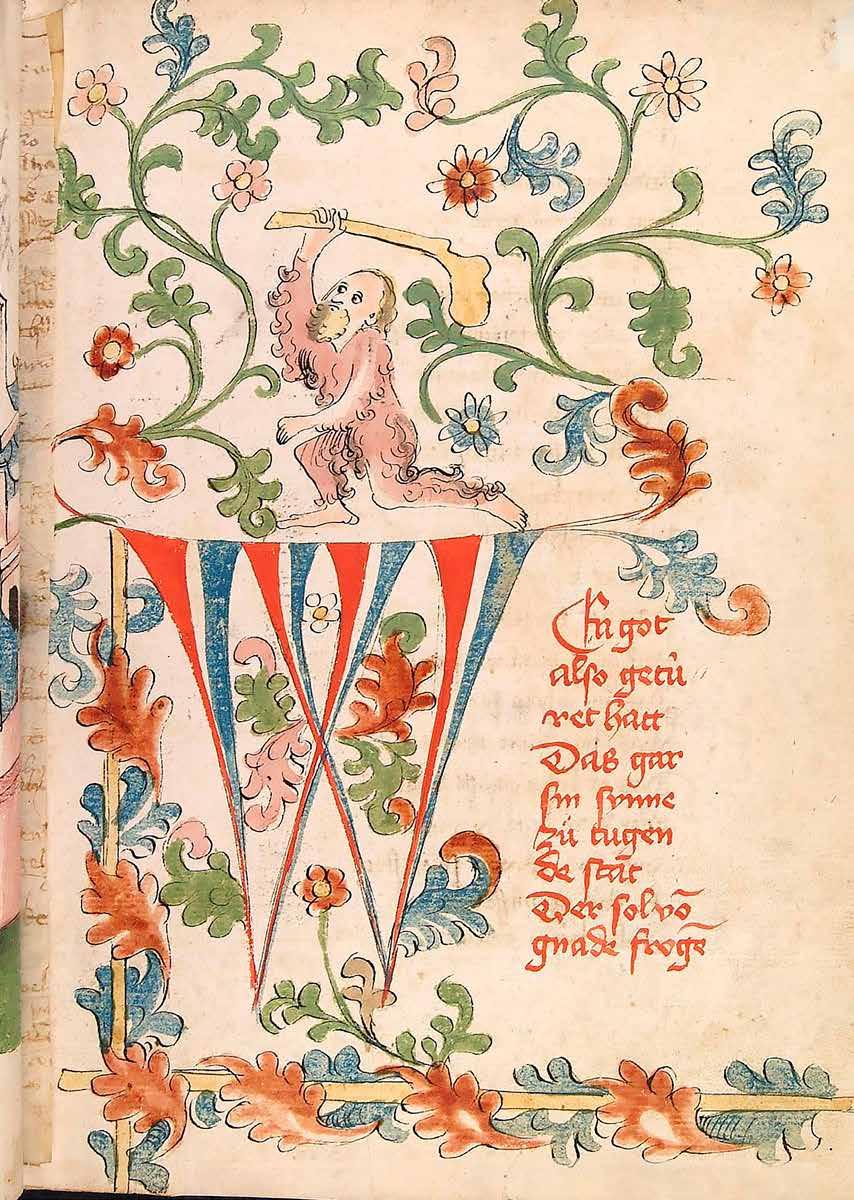 WEn got
also getü
ret hatt
Das gar
sin synne
zů tugen
de stāt
Der sol vō
gnade frogē